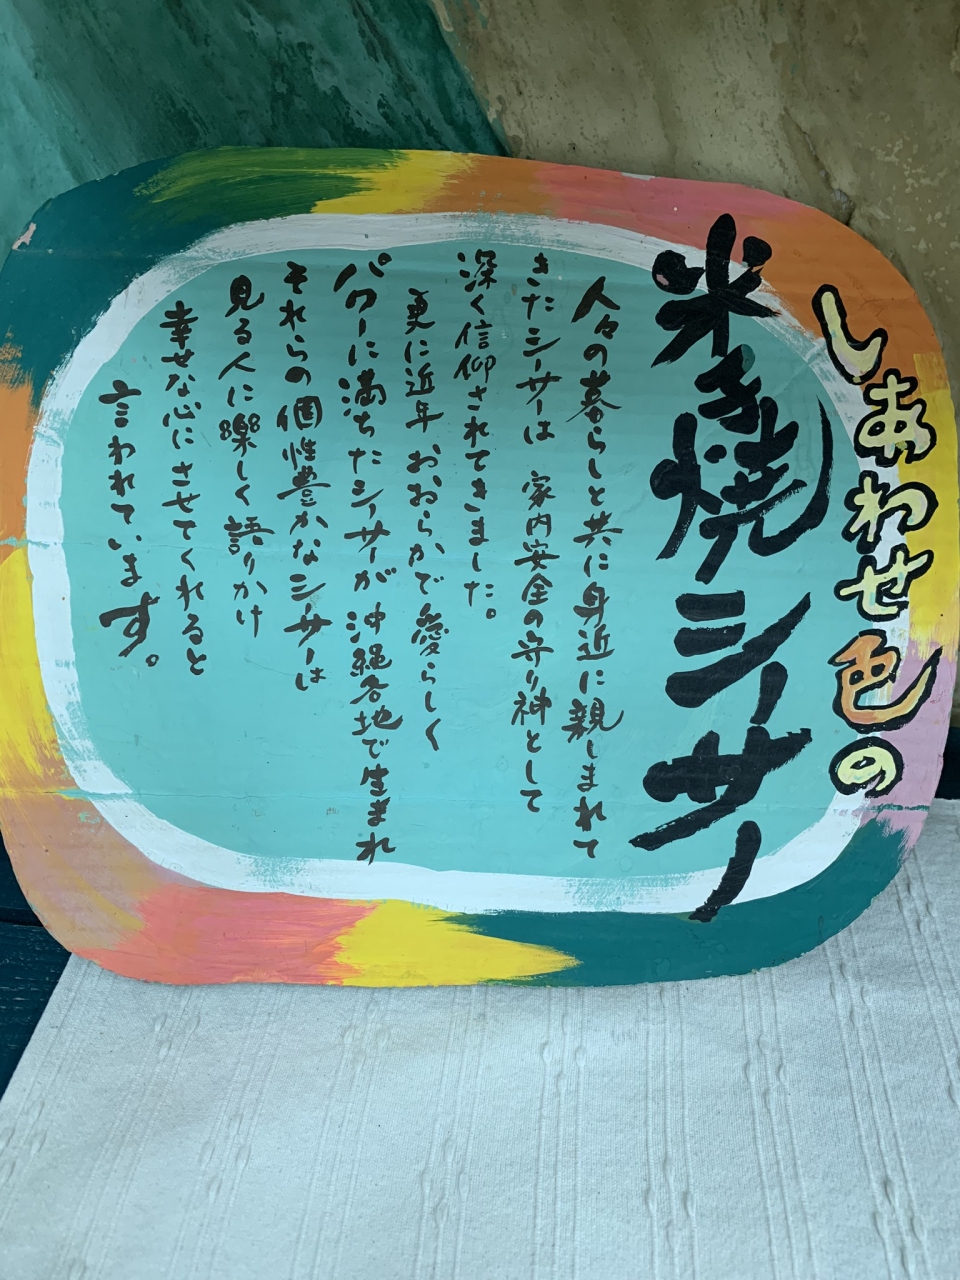 しあわせ色の
米き焼シーサー
人々の暮らしと共に身近に親しまれて
きたシーサーは 家内安全の守り神として
深く信仰されてきました。
更に近年 おおらかで愛らしく
パワーに満ちたシーサーが 沖縄各地で生まれ
それらの個性豊かなシーサーは
見る人に樂しく語りかけ
幸せな心にさせてくれると
言われています。